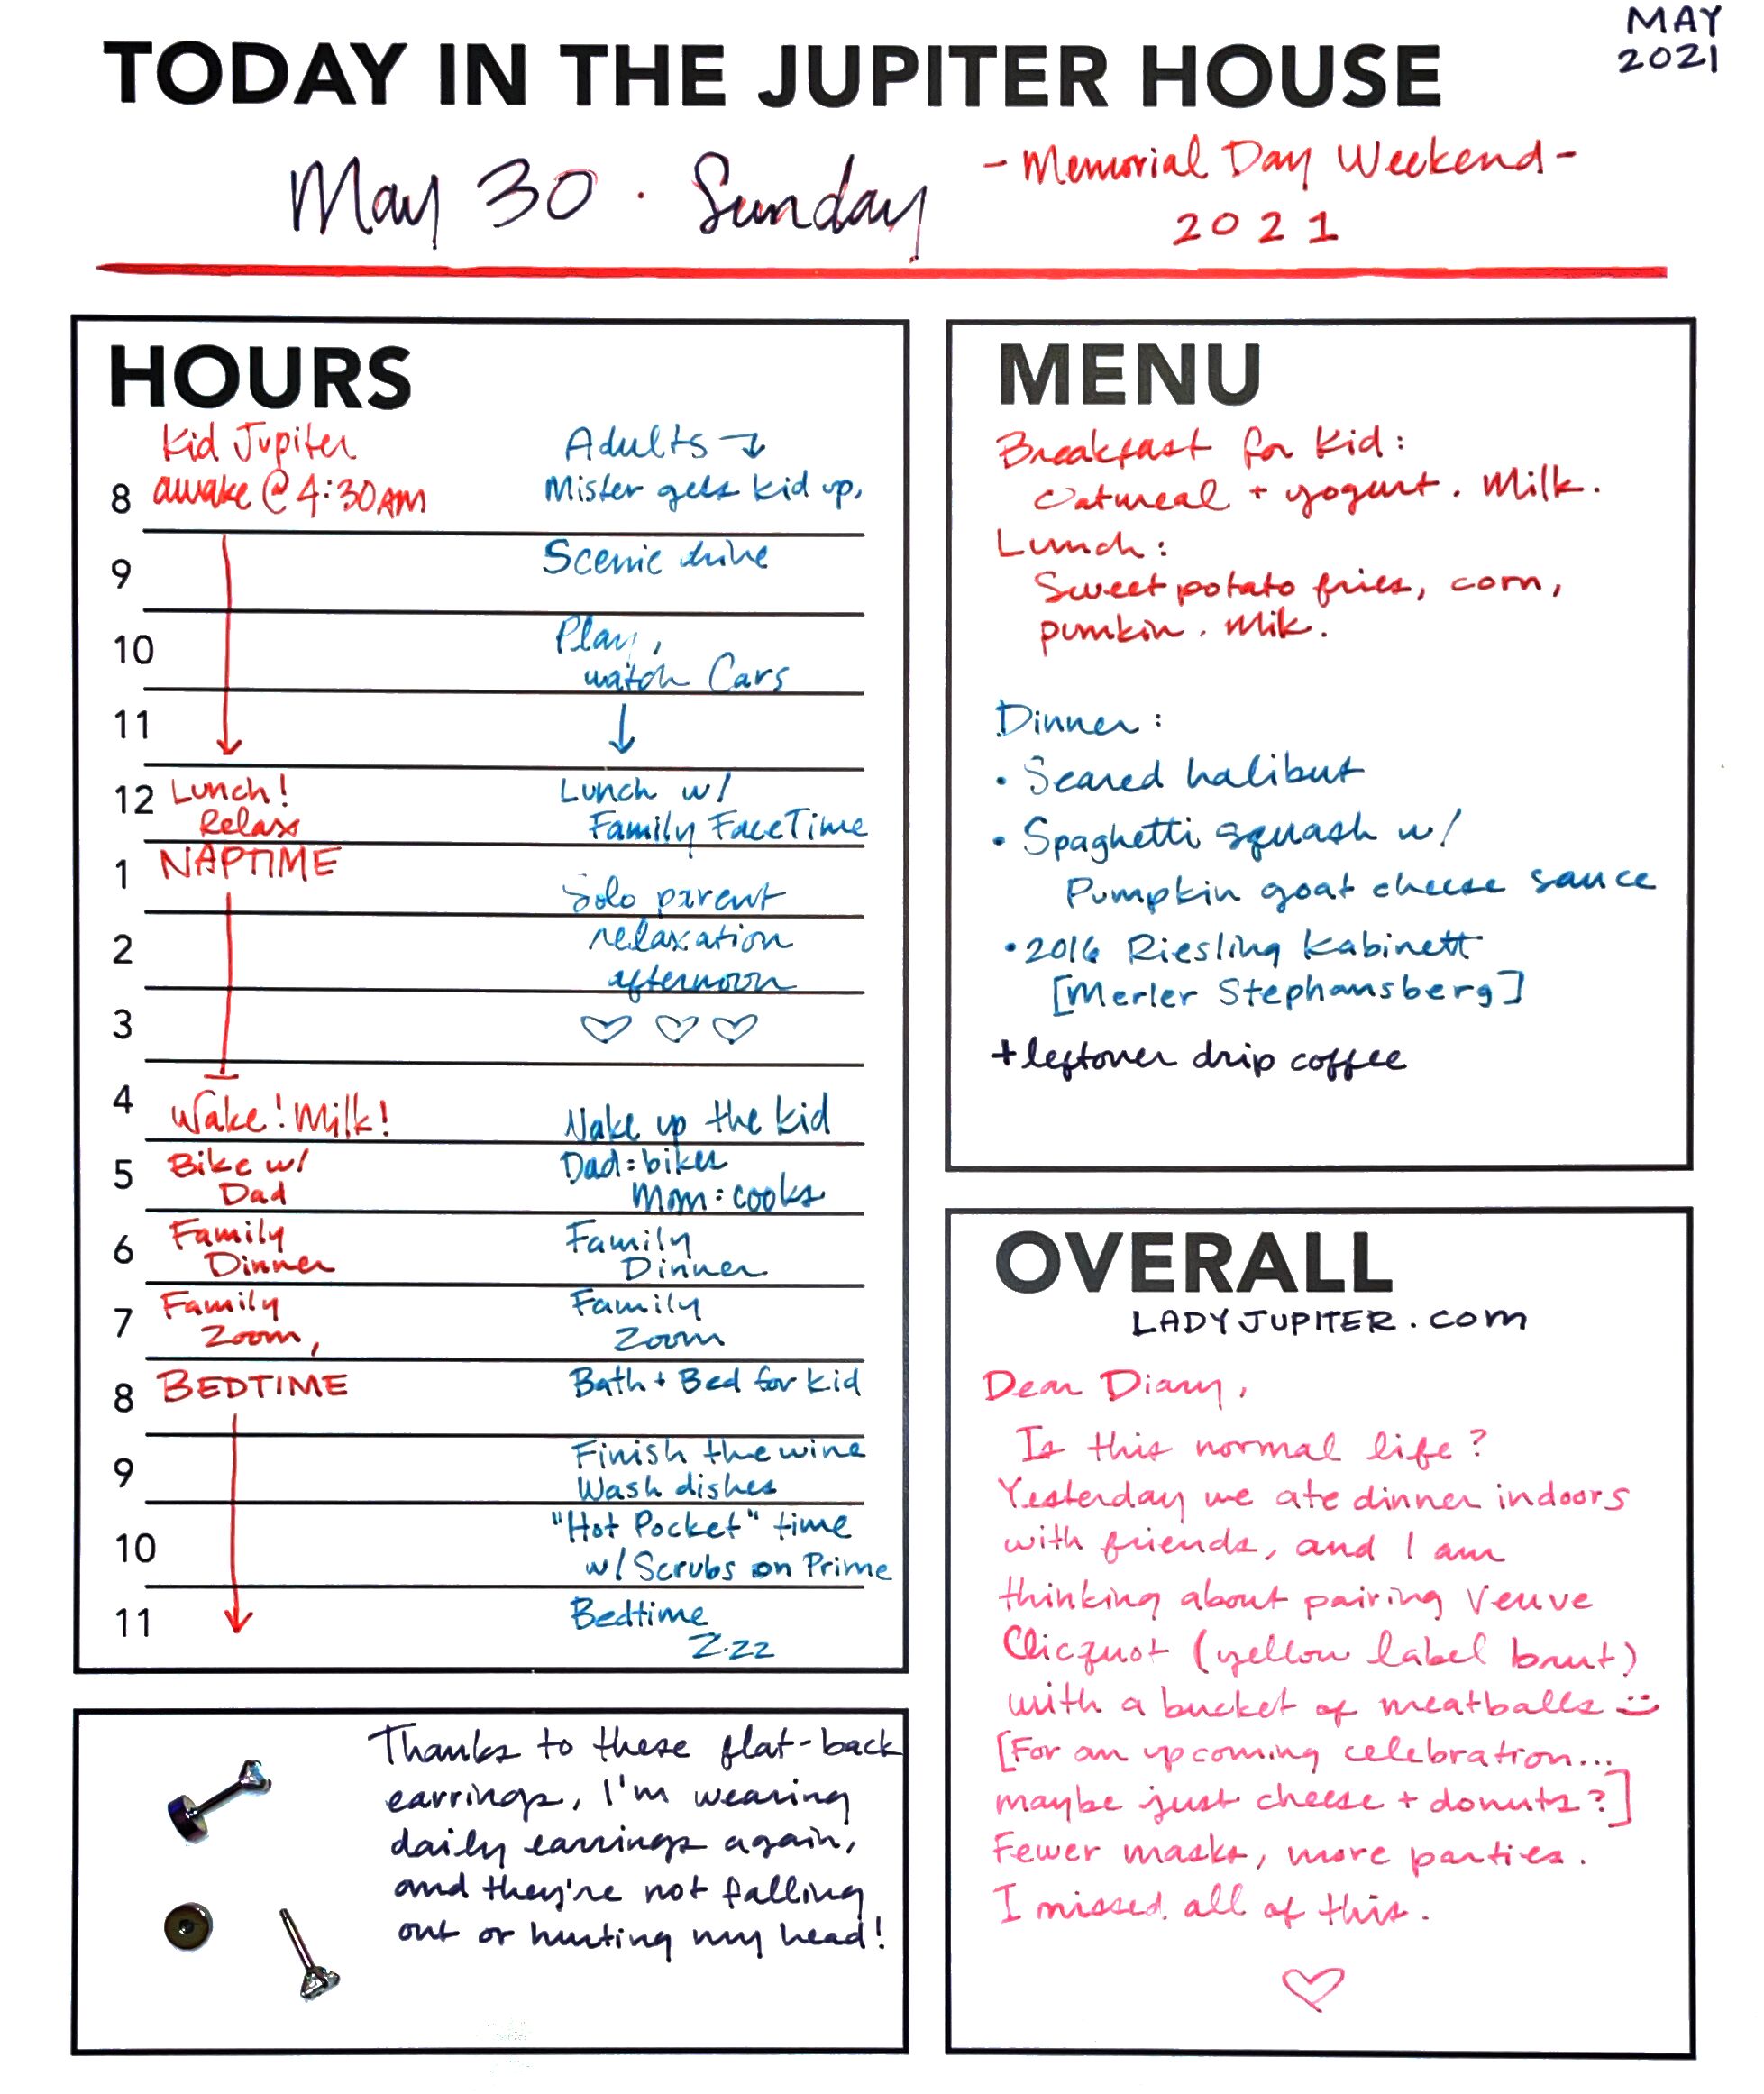 MAY
2021
TODAY IN THE JUPITER HOUSE
May 30 · Sunday
- Memorial Day Weekend -
2021
HOURS
Kid Jupiter
Adults
8 awake @ 4:30AM
Mister gets kid up,
9
Scenic drive
10
Play,
watch Cars
11
12 Lunch!
Relax
Lunch w/
Family FaceTime
1 NAPTIME
Solo parent
2
relaxation
afternoon
3
4
Wake! Milk!
Wake up the kid
5 Bike w/
Dad
Dad: bikes
Mom: cooks
6 Family
Dinner
Family
Dinner
7 Family
Zoom,
Family
Zoom
8 BEDTIME
Bath + Bed for kid
9
Finish the wine
Wash dishes
10
"Hot Pocket" time
w/ Scrubs on Prime
11
Bedtime
Zzzz
MENU
Breakfast for Kid:
Oatmeal + yogurt. Milk.
Lunch:
Sweet potato fries, corn,
pumkin. Mik.
Dinner:
• Seared halibut
• Spaghetti squash w/
Pumpkin goat cheese sauce
• 2016 Riesling Kabinett
[Merler Stephansberg]
+ leftover drip coffee
OVERALL
LADYJUPITER.com
Dear Diary,
Is this normal life?
Yesterday we ate dinner indoors
with friends, and I am
thinking about pairing Veuve
Clicquot (yellow label brut)
with a bucket of meatballs
[For an upcoming celebration...
maybe just cheese + donuts?]
Fewer masks, more parties.
I missed all of this.
Thanks to these flat-back
earrings, I'm wearing
daily earrings again,
and they're not falling
out or hurting my head!